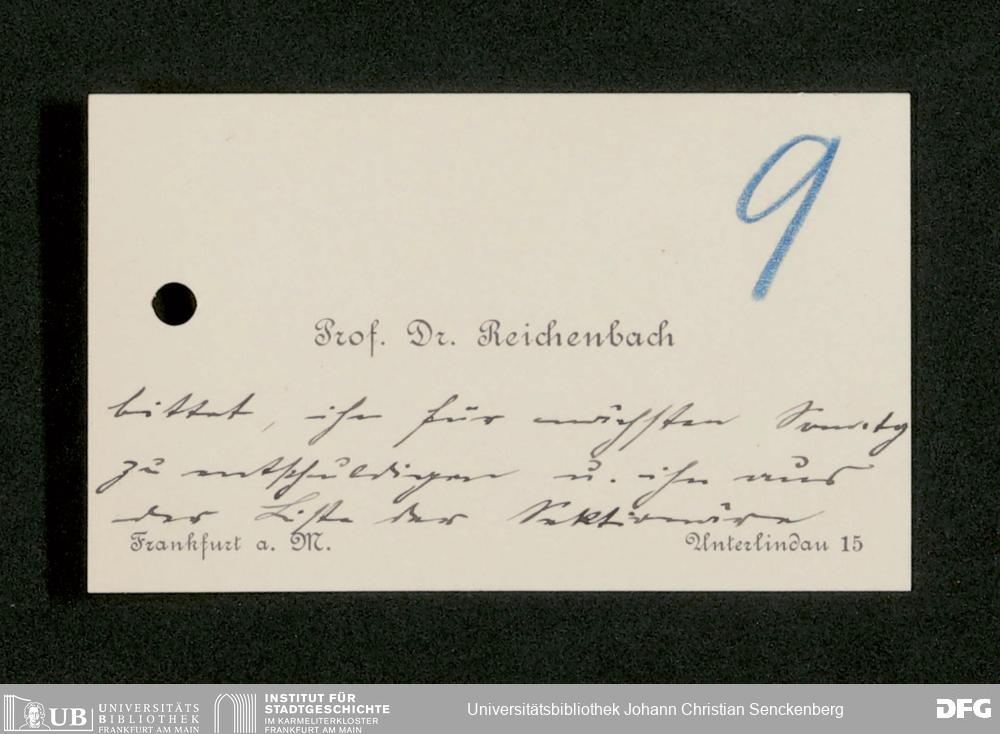 9
Prof. Dr. Reichenbach
bittet, ihn für nächsten
zu entschuldigen u. ihn aus
der Liste der Sektionäre
Frankfurt a. M.
Unterlindau 15
UB UNIVERSITÄTS
BIBLIOTHEK
FRANKFURT AM MAIN
INSTITUT FÜR
STADTGESCHICHTE
IM KARMELITERKLOSTER
FRANKFURT AM MAIN
Universitätsbibliothek Johann Christian Senckenberg
DFG